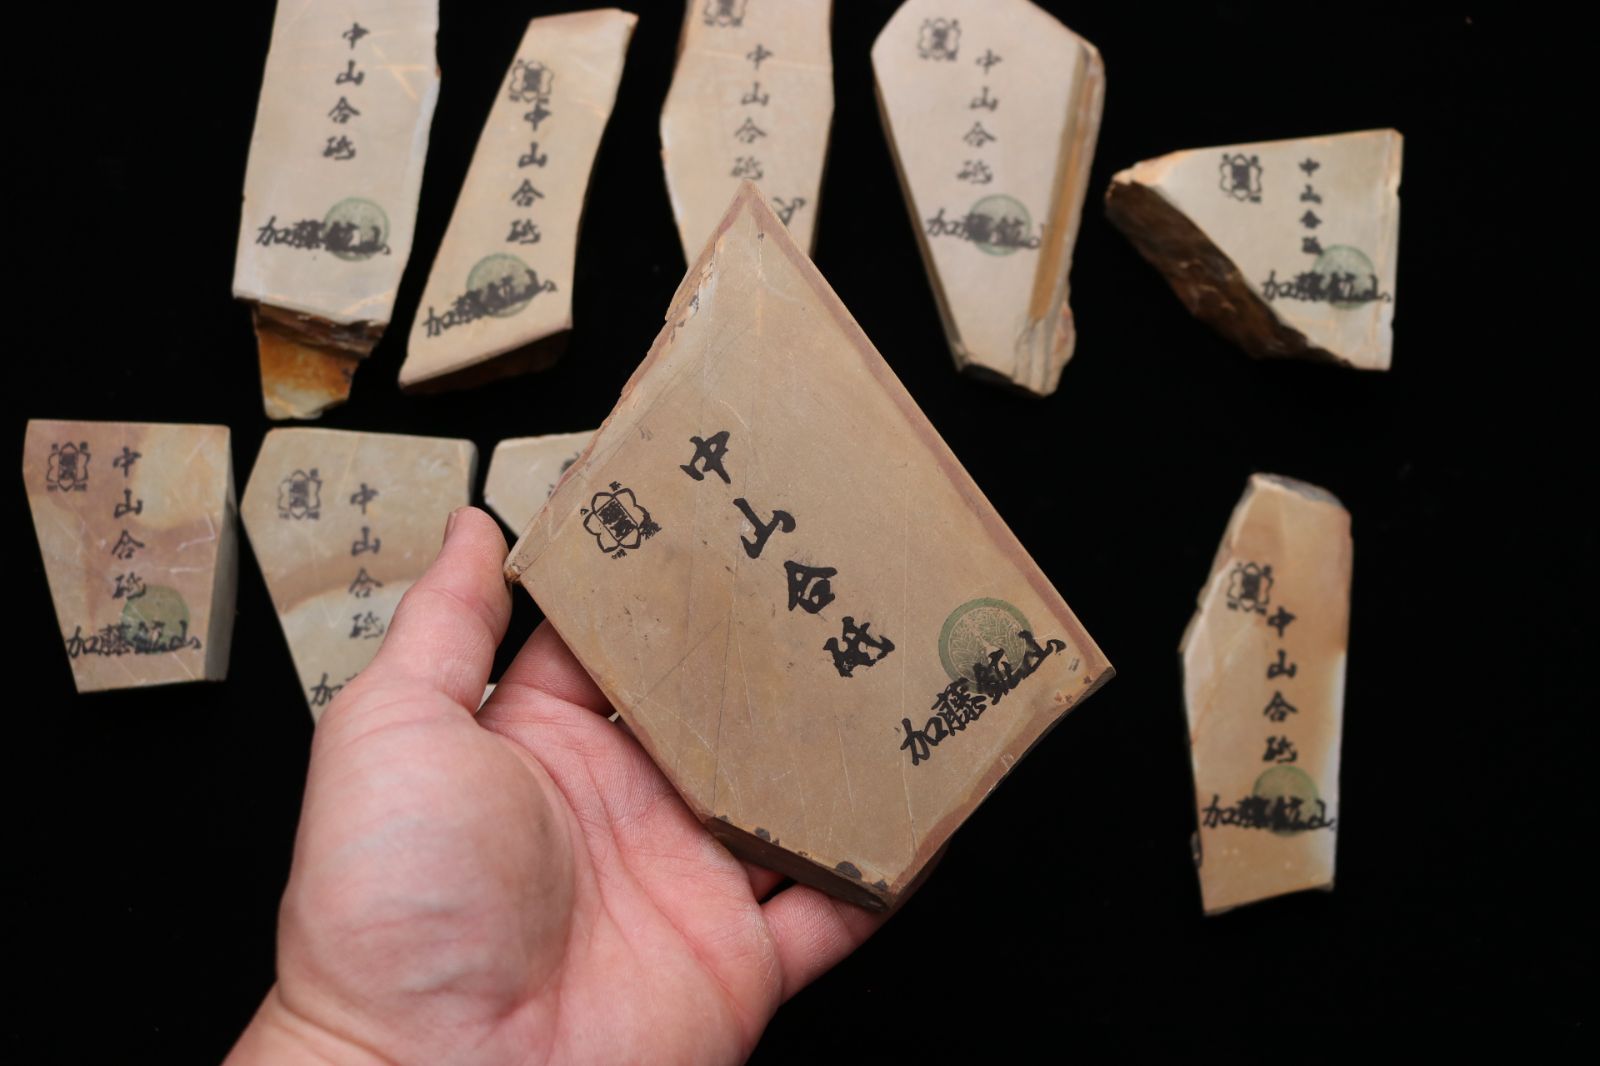 中山合砥
加藤鉱山
中山合砥
加藤鉱山
中山合砥
中山合砥
加藤鉱山
中山合砥
加藤鉱山
中山合砥
加藤鉱山
中山合砥
中山合砥
加藤鉱山
中山合砥
加藤鉱山